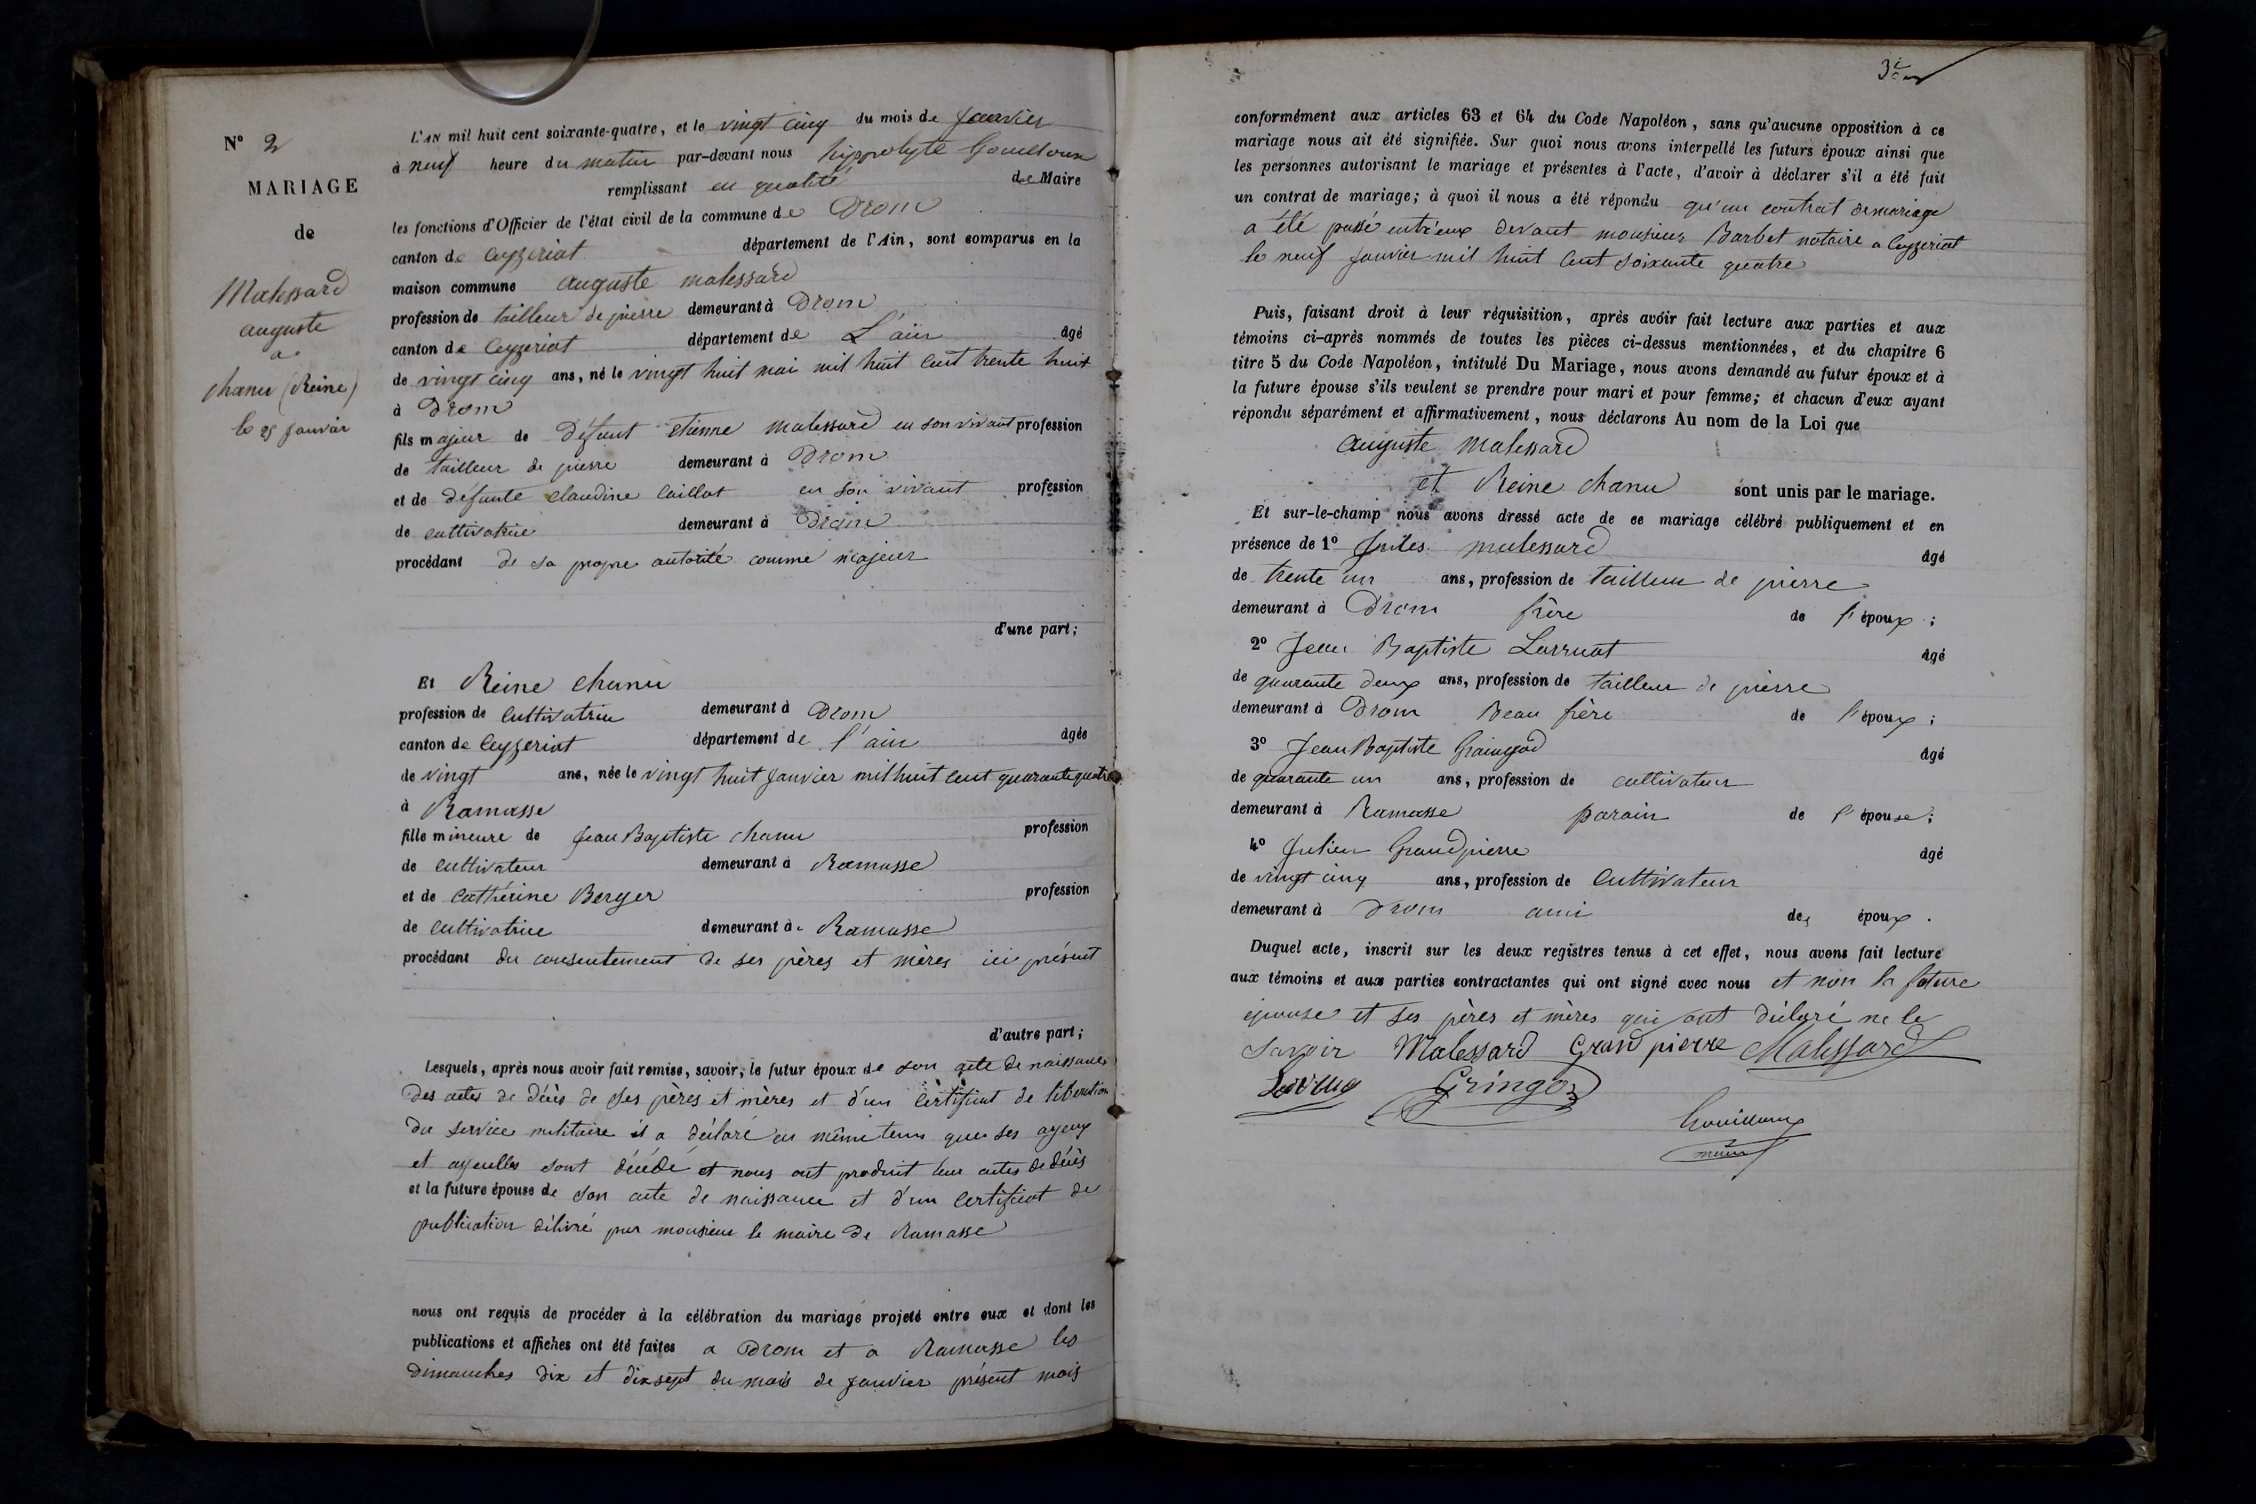 N° 2
MARIAGE
de
Malessard
auguste
a
chanu (Reine)
le 25 janvier
L'AN mil huit cent soixante-quatre, et le vingt cinq du mois de janvier
à neuf heure du matin par-devant nous hippolyte
remplissant en qualité de Maire
les fonctions d'Officier de l'état civil de la commune de Drom
canton de Ceyzeriat département de l'Ain, sont comparus en la
maison commune auguste malessard
profession de tailleur de pierre demeurant à Drom
canton de Ceyzeriat département de L'ain âgé
de vingt cinq ans, né le vingt huit mai mil huit cent trente huit
à Drom
fils majeur de Défunt etienne malessard en son vivant profession
de tailleur de pierre demeurant à Drom
et de défunte claudine Caillat en son vivant profession
de cultivatrice demeurant à Drom
procédant de sa propre autorité comme majeur
d'une part;
Et Reine chanu
profession de cultivatrice demeurant à Drom
canton de Ceyzeriat département de l'ain âgée
de vingt ans, née le vingt huit janvier mil huit cent quarante quatre
à Ramasse
fille mineure de Jean Baptiste chanu profession
de cultivateur demeurant à Ramasse
et de cathérine Berger profession
de cultivatrice demeurant à Ramasse
procédant du consentement de ses pères et mères ici présent
d'autre part;
Lesquels, après nous avoir fait remise, savoir, le futur époux de son acte de naissance
des actes de décès de ses pères et mères et d'un certificat de libération
du service militaire il a déclaré en même tems que ses ayeux
et ayeulles sont décédé et nous ont produit leur actes de décès
et la future épouse de son acte de naissance et d'un certificat de
publication délivré par monsieur le maire de Ramasse
nous ont requis de procéder à la célébration du mariage projeté entre eux et dont les
publications et affiches ont été faites a Drom et a Ramasse les
dimanches dix et dix sept du mois de janvier présent mois
conformément aux articles 63 et 64 du Code Napoléon, sans qu'aucune opposition à ce
mariage nous ait été signifiée. Sur quoi nous avons interpellé les futurs époux ainsi que
les personnes autorisant le mariage et présentes à l'acte, d'avoir à déclarer s'il a été fait
un contrat de mariage; à quoi il nous a été répondu qu'un contrat de mariage
a été passé entr'eux devant monsieur Barbet notaire a Ceyzeriat
le neuf janvier mil huit cent soixante quatre
Puis, faisant droit à leur réquisition, après avoir fait lecture aux parties et aux
témoins ci-après nommés de toutes les pièces ci-dessus mentionnées, et du chapitre 6
titre 5 du Code Napoléon, intitulé Du Mariage, nous avons demandé au futur époux et à
la future épouse s'ils veulent se prendre pour mari et pour femme; et chacun d'eux ayant
répondu séparément et affirmativement, nous déclarons Au nom de la Loi que
auguste malessard
et Reine chanu sont unis par le mariage.
Et sur-le-champ nous avons dressé acte de ce mariage célébré publiquement et en
présence de 1° Jules malessard âgé
de trente un ans, profession de tailleur de pierre
demeurant à Drom frère de l'époux;
2° Jean Baptiste âgé
de quarante deux ans, profession de tailleur de pierre
demeurant à Drom Beau frère de l'époux;
3° Jean Baptiste âgé
de quarante un ans, profession de cultivateur
demeurant à Ramasse parain de l'épouse;
4° Julien Grandpierre âgé
de vingt cinq ans, profession de Cultivateur
demeurant à Drom ami des époux.
Duquel acte, inscrit sur les deux registres tenus à cet effet, nous avons fait lecture
aux témoins et aux parties contractantes qui ont signé avec nous et non la future
épouse et ses pères et mères qui ont déclaré ne le
savoir Malessard Grandpierre Malessard
Gringoz
maire